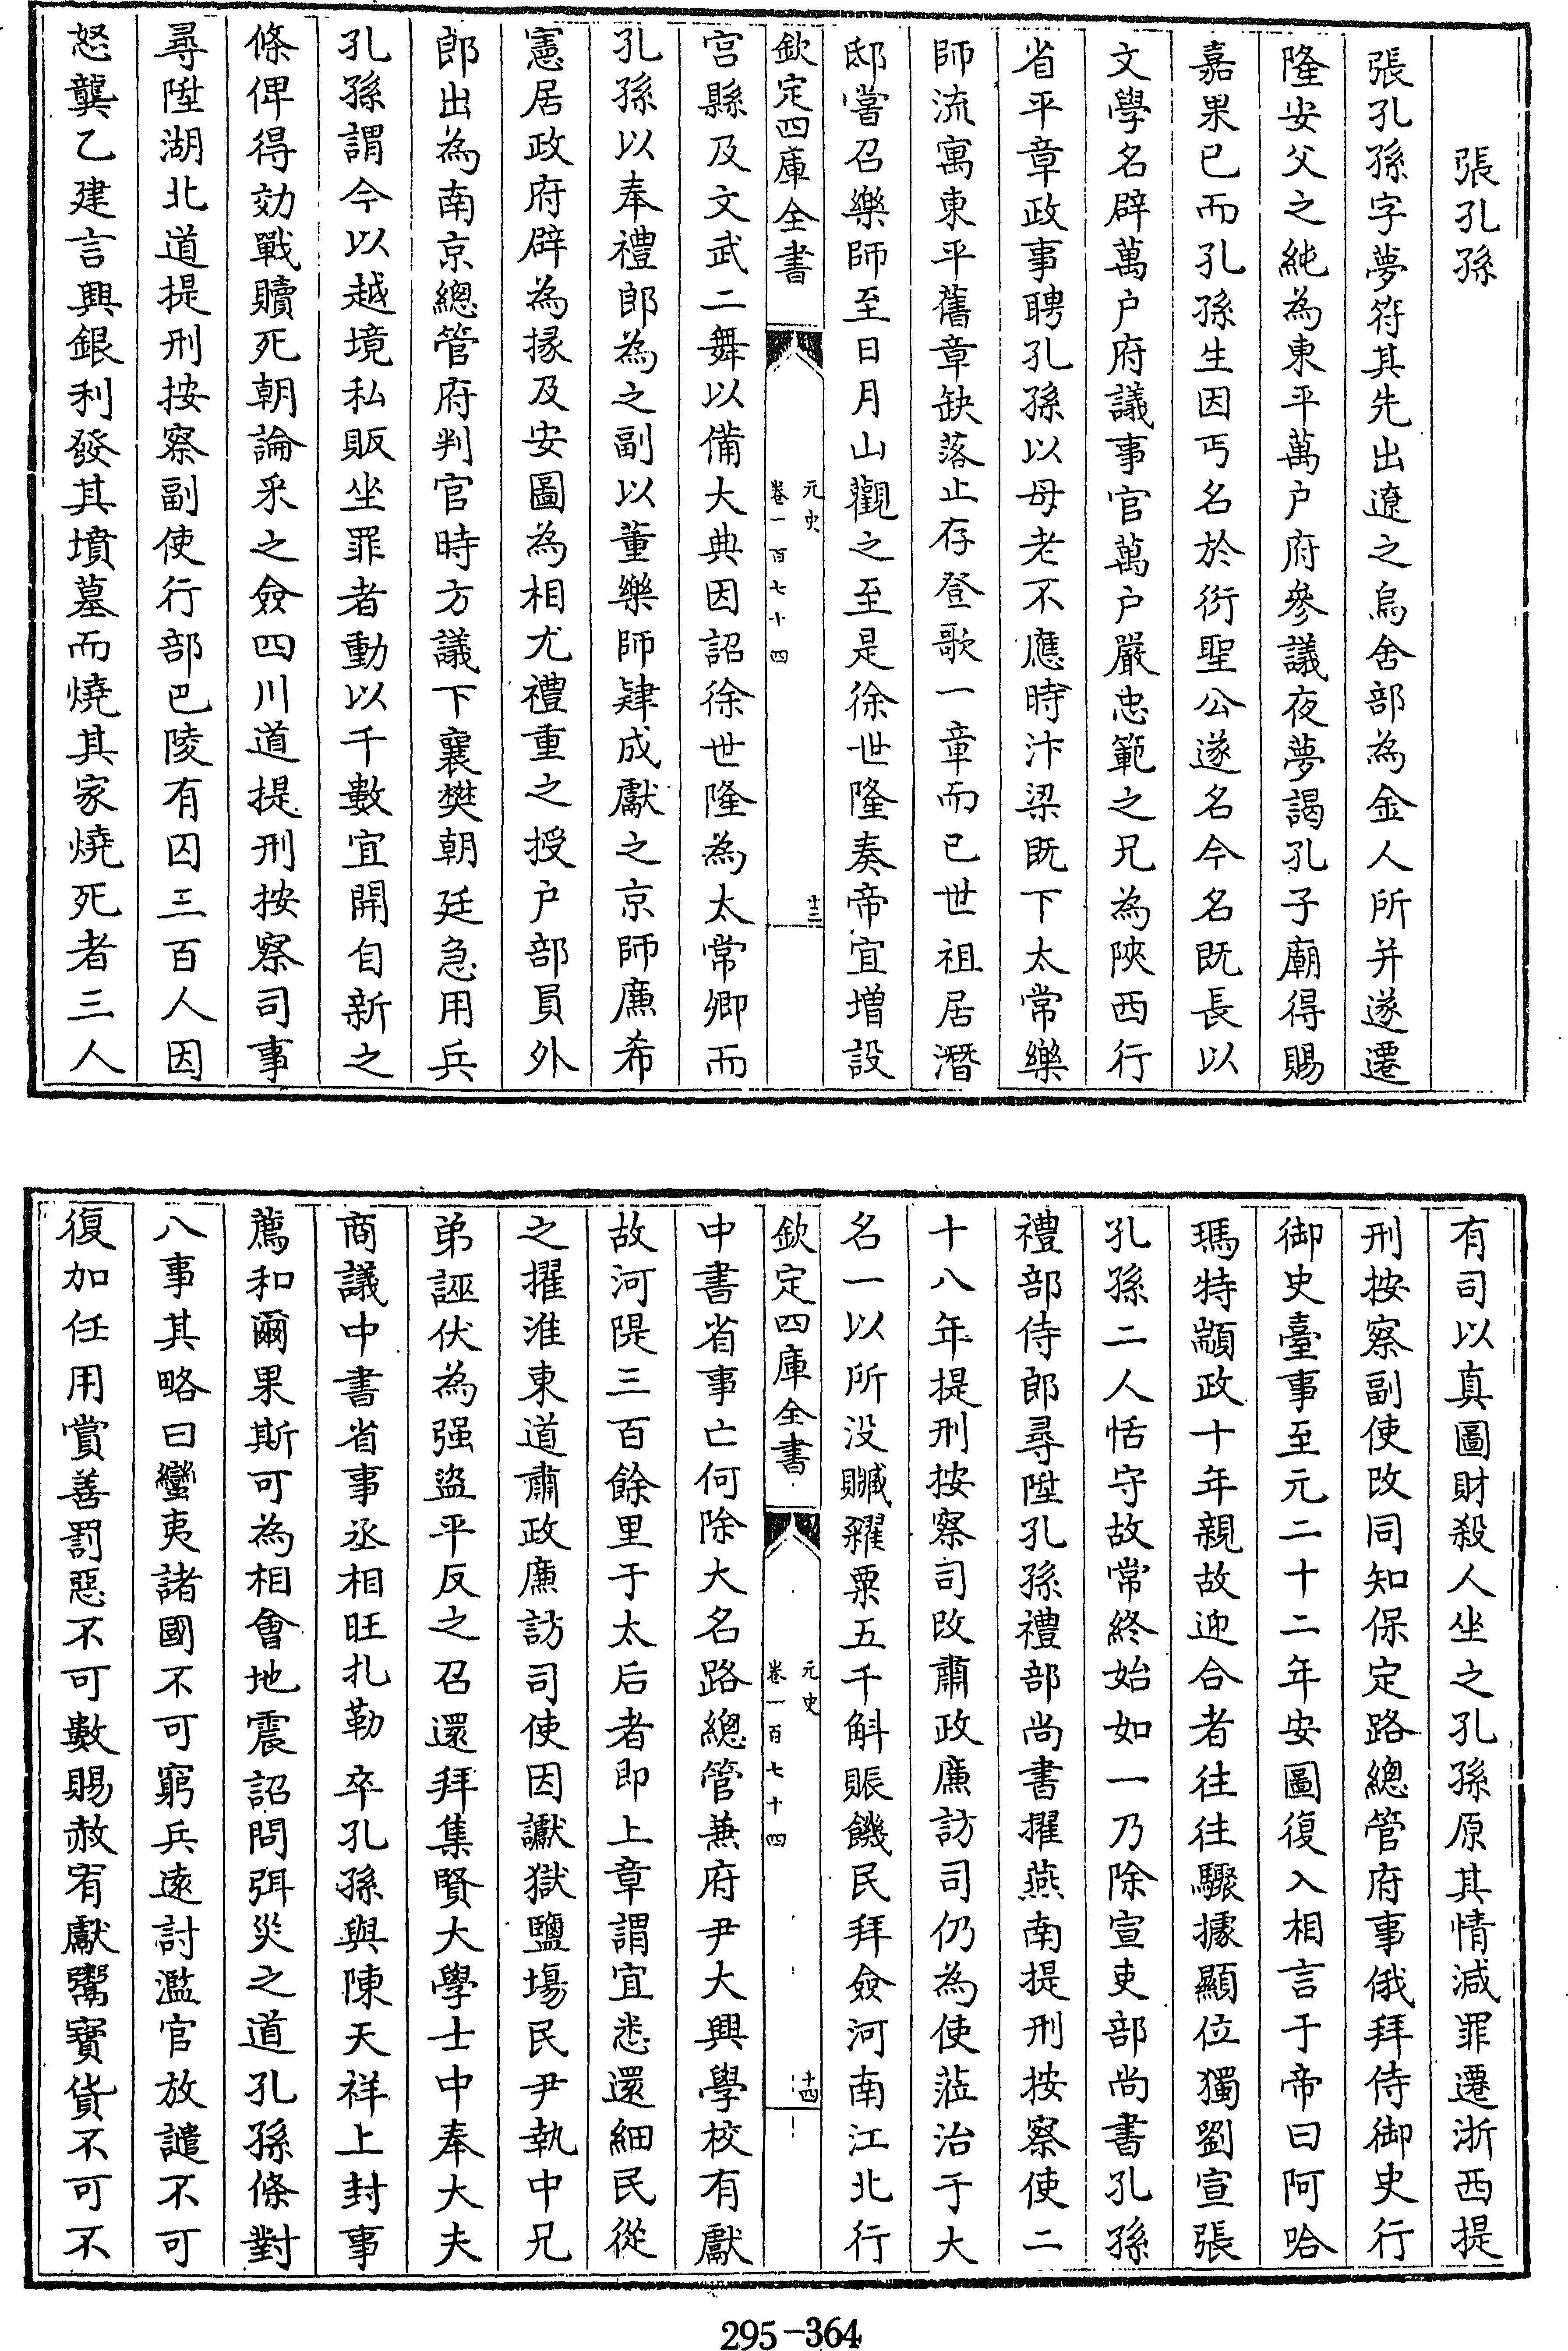 張孔孫
張孔孫字夢符其先出遼之烏舍部為金人所并遂遷
隆安父之純為東平萬户府參議夜夢謁孔子廟得賜
嘉果已而孔孫生因丐名於衍聖公遂名今名既長以
文學名辟萬户府議事官萬户嚴忠範之兄為陜西行
省平章政事聘孔孫以母老不應時汴梁既下太常樂
師流寓東平舊章缺落止存登歌一章而已世祖居潛
邸嘗召樂師至日月山觀之至是徐世隆奏帝宜增設
欽定四庫全書 元史 卷一百七十四 十三
宫縣及文武二舞以備大典因詔徐世隆為太常卿而
孔孫以奉禮郎為之副以董樂師肄成獻之京師廉希
憲居政府辟為掾及安圖為相尤禮重之授户部員外
郎出為南京總管府判官時方議下襄樊朝廷急用兵
孔孫謂今以越境私販坐罪者動以千數宜開自新之
條俾得効戰贖死朝論采之僉四川道提刑按察司事
尋陞湖北道提刑按察副使行部巴陵有囚三百人因
怒龔乙建言興銀利發其墳墓而燒其家燒死者三人
有司以真圖財殺人坐之孔孫原其情減罪遷浙西提
刑按察副使改同知保定路總管府事俄拜侍御史行
御史臺事至元二十二年安圖復入相言于帝曰阿哈
瑪特顓政十年親故迎合者往往驟據顯位獨劉宣張
孔孫二人恬守故常終始如一乃除宣吏部尚書孔孫
禮部侍郎尋陞孔孫禮部尚書擢燕南提刑按察使二
十八年提刑按察司改肅政廉訪司仍為使蒞治于大
名一以所没贓糴粟五千斛賑饑民拜僉河南江北行
欽定四庫全書 元史 卷一百七十四 十四
中書省事亡何除大名路總管兼府尹大興學校有獻
故河隄三百餘里于太后者即上章謂宜悉還細民從
之擢淮東道肅政廉訪司使因讞獄鹽場民尹執中兄
弟誣伏為强盜平反之召還拜集賢大學士中奉大夫
商議中書省事丞相旺扎勒卒孔孫與陳天祥上封事
薦和爾果斯可為相會地震詔問弭災之道孔孫條對
八事其略曰蠻夷諸國不可窮兵遠討濫官放譴不可
復加任用賞善罰惡不可數賜赦宥獻鬻寳貨不可不
295-364